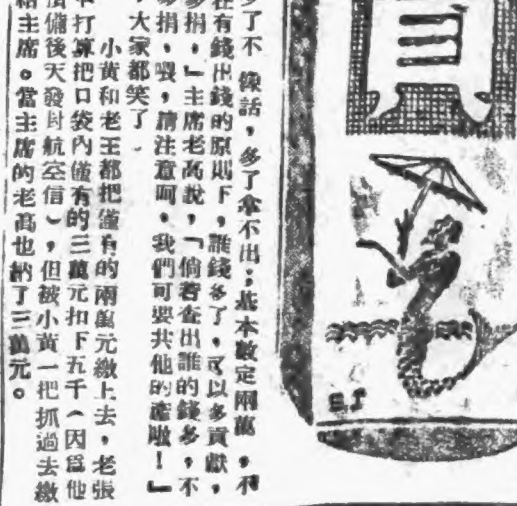 了不像話,多了拿不出;基本數定兩萬,不
在有錢出錢的原則下,誰錢多了,可以多貢獻,
多捐。」主席老高說,「倘若查出誰的錢多,不
多捐,喂,請注意呵,我們可要共他的產啦!」
大家都笑了。
小黃和老王都把僅有的兩萬元繳上去,老張
本打算把口袋內僅有的三萬元扣下五千(因爲他
預備後天發封航空信),但被小黃一把抓過去繳
給主席。當主席的老高也納了三萬元。